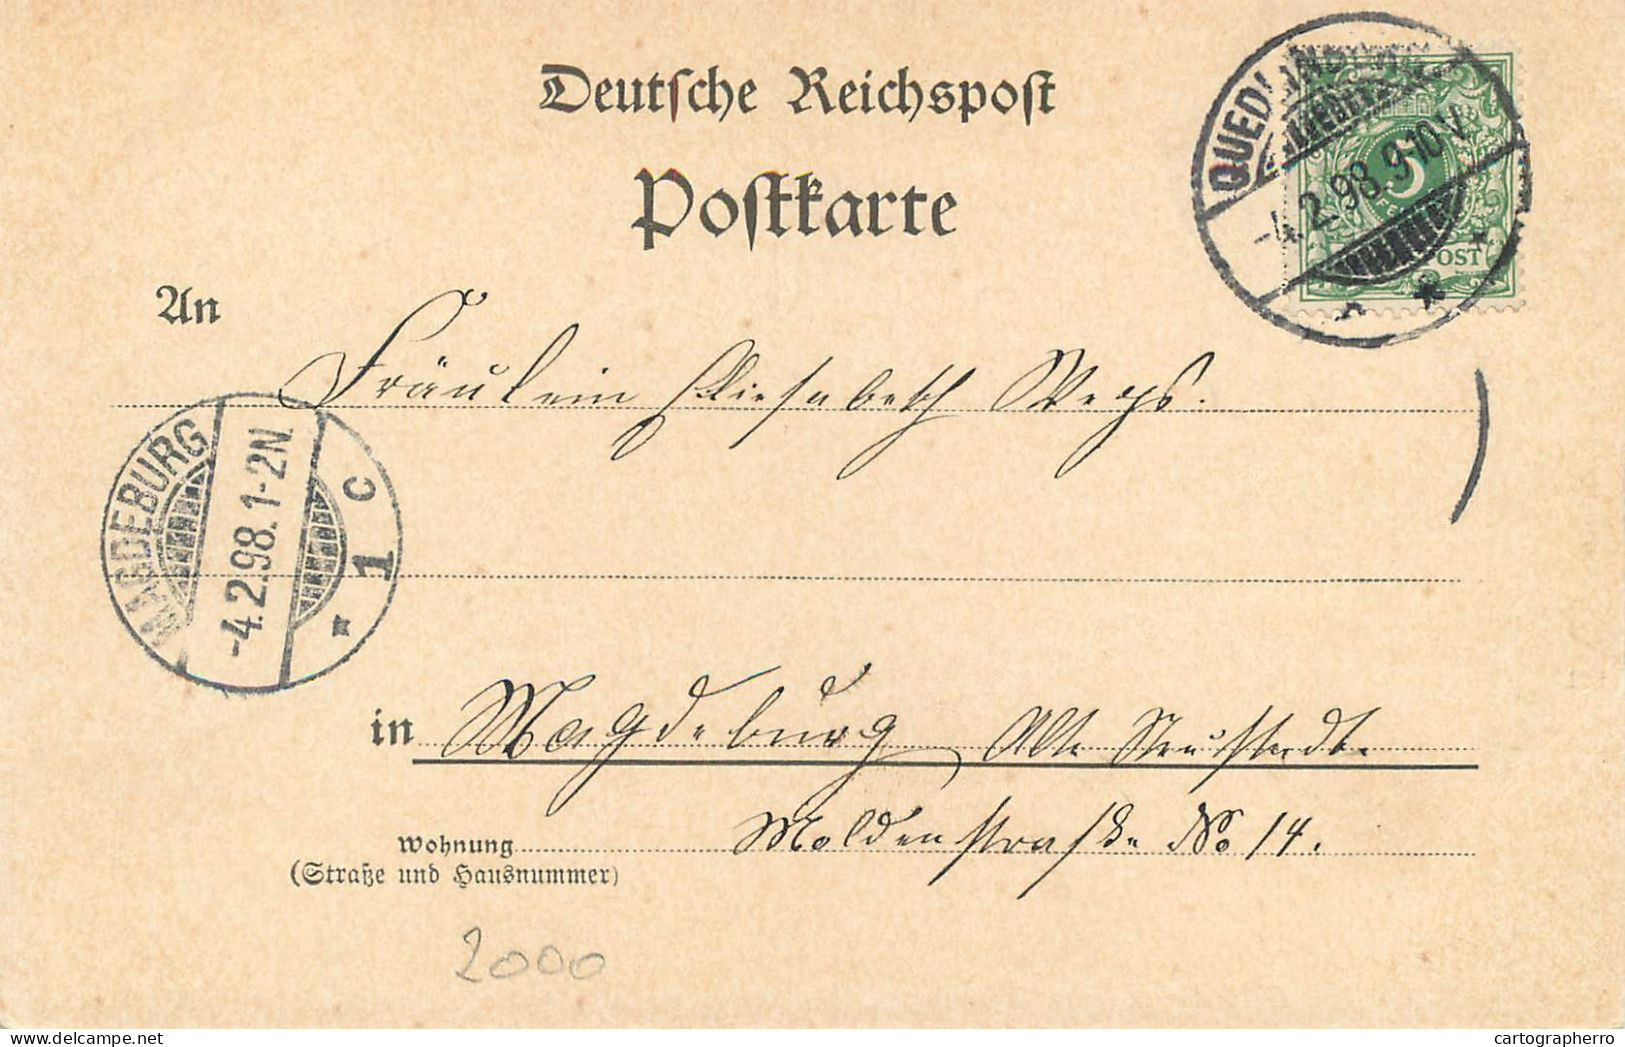 Deutsche Reichspost
Postkarte
QUEDLINBURG
-4.2.98.9-10V.
5
POST
An
Fräulein Elisabeth
MAGDEBURG
-4.2.98.1-2N.
C
1
in Magdeburg, Alte Neustadt.
Wohnung
(Straße und Hausnummer)
No 14.
2000
cartographerro